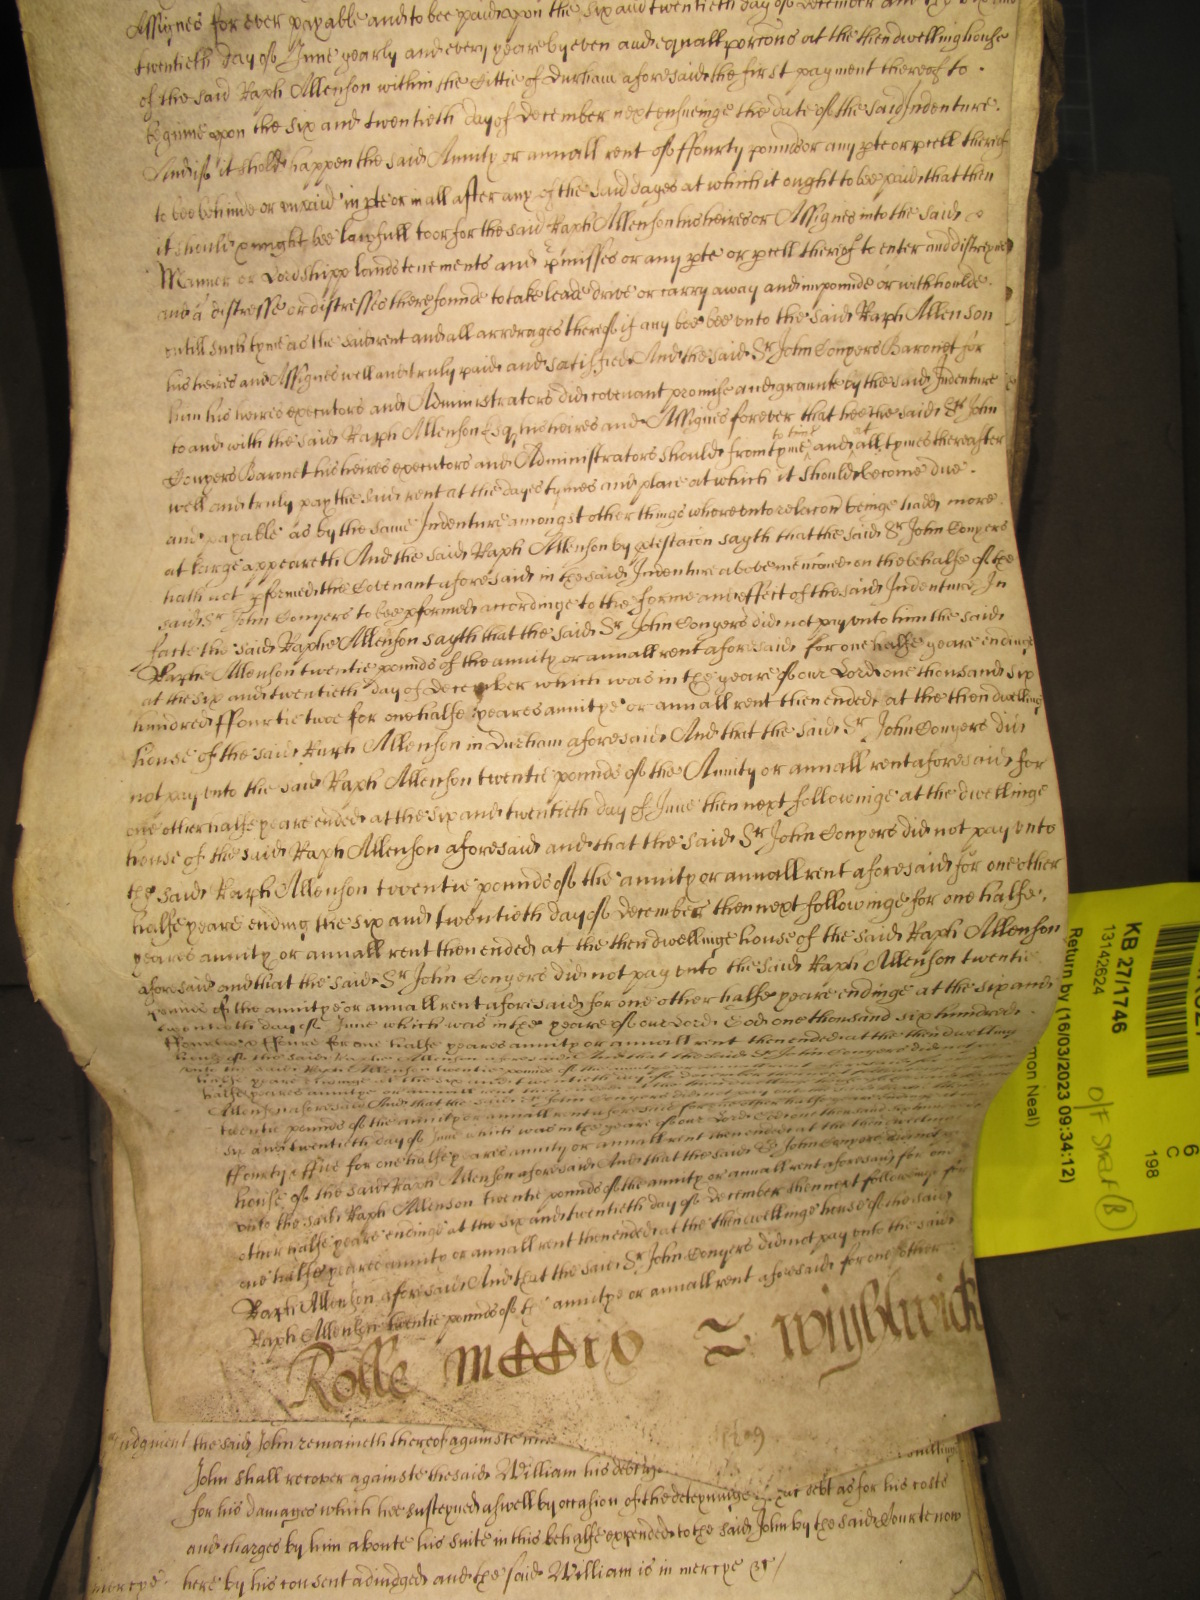 Assignes for ever payable and to bee paid upon the six and twentieth day of December and the six and
twentieth day of June yearly and every yeare by even and equall porcons at the then dwellinghouse
of the said Raph Allenson within the Cittie of Durham aforesaid the first payment thereof to
begine upon the six and twentieth day of December next ensueinge the date of the said Indenture.
And if it shold happen the said Anuity or annall rent of ffourty pounds or any pte or pcell thereof
to bee behinde or unpaid in pte or in all after any of the said dayes at which it ought to bee paid that then
it should & might bee lawfull to or for the said Raph Allenson his heires or Assignes into the said
Mannor or Lordshipp lands tenements and pmisses or any pte or pcell thereof to enter and distreyne
and a distresse or distresses there founde to take leade drive or carry away and impounde or withholde
untill such tyme as the said rent and all arrerages thereof if any bee bee unto the said Raph Allenson
his heires and Assignes well and truly paid and satisfied And the said Sr John Conyers Baronet for
him his heires executors and Administrators did covenant promise and graunte by the said Indenture
to and with the said Raph Allenson Esq his heires and Assignes forever that hee the said Sr John
Conyers Baronet his heires executors and Administrators should from tyme to time and at all tymes thereafter
well and truly pay the said rent at the dayes tymes and place at which it should become due
and payable as by the same Indenture amongst other things whereunto relacon beinge hadd more
at large appeareth And the said Raph Allenson by ptestacon sayth that the said Sr John Conyers
hath not pformed the Covenant aforesaid in the said Indenture above menconed on the behalfe of the
said Sr John Conyers to bee pformed accordinge to the forme and effect of the said Indenture In
facte the said Raphe Allenson sayth that the said Sr John Conyers did not pay unto him the said
Raphe Allenson twentie pounds of the anuity or annall rent aforesaid for one halfe yeare endinge
at the six and twentieth day of December which was in the yeare of our Lord one thousand six
hundred ffourtie twoe for one halfe yeares anuitye or annall rent then ended at the then dwelling
house of the said Raph Allenson in Durham aforesaid And that the said Sr John Conyers did
not pay unto the said Raph Allenson twentie pounds of the Anuity or annall rent aforesaid for
one other halfe yeare ended at the six and twentieth day of June then next followinge at the dwellinge
house of the said Raph Allenson aforesaid and that the said Sr John Conyers did not pay unto
the said Raph Allenson twentie pounds of the anuity or annall rent aforesaid for one other
halfe yeare ending the six and twentieth day of December then next followinge for one halfe
yeares anuity or annall rent then ended at the then dwellinge house of the said Raph Allenson
aforesaid and that the said Sr John Conyers did not pay unto the said Raph Allenson twentie
pounds of the anuitye or annall rent aforesaid for one other halfe yeare endinge at the six and
twentieth day of June which was in the yeare of our Lord God one thousand six hundred
ffourtie ffoure for one halfe yeares anuity or annall rent then ended at the then dwelling
house of the said Raphe Allenson aforesaid And that the said Sr John Conyers did not pay
unto the said Raph Allenson twentie pounds of the
halfe yeare endinge at the six and twentieth day of December
halfe yeares anuitye or annall rent
Allenson aforesaid And that the said Sr John Conyers did not pay
twentie pounds of the anuity or annall rent aforesaid for one other halfe yeare
six and twentieth day of June which was in the yeare of our Lord God one thousand six hundred
ffourty & ffive for one halfe yeares anuity or annall rent then ended at the then dwelling
house of the said Raph Allenson aforesaid And that the said Sr John Conyers did not pay
unto the said Raph Allenson twentie pounds of the anuity or annall rent aforesaid for one
other halfe yeare endinge at the six and twentieth day of December then next followinge for
one halfe yeares anuity or annall rent then ended at the then dwellinge house of the said
Raph Allenson aforesaid And that the said Sr John Conyers did not pay unto the said
Raph Allenson twentie pounds of the anuitye or annall rent aforesaid for one other
Rolle Wightwick
Judgment the said John remaineth thereof againste
John shall recover againste the said William his debt
for his damages which hee susteyned aswell by occasion of the deteyninge debt as for his costs
and charges by him aboute his suite in this behalfe expended to the said John by the said Courte now
mercye here by his consent adiudged and the said William is in mercye &c/
KB 27/1746
13142624
Return by (16/03/2023 09:34:12)
mon Neal)
6
C
198
O/F Shelf (B)